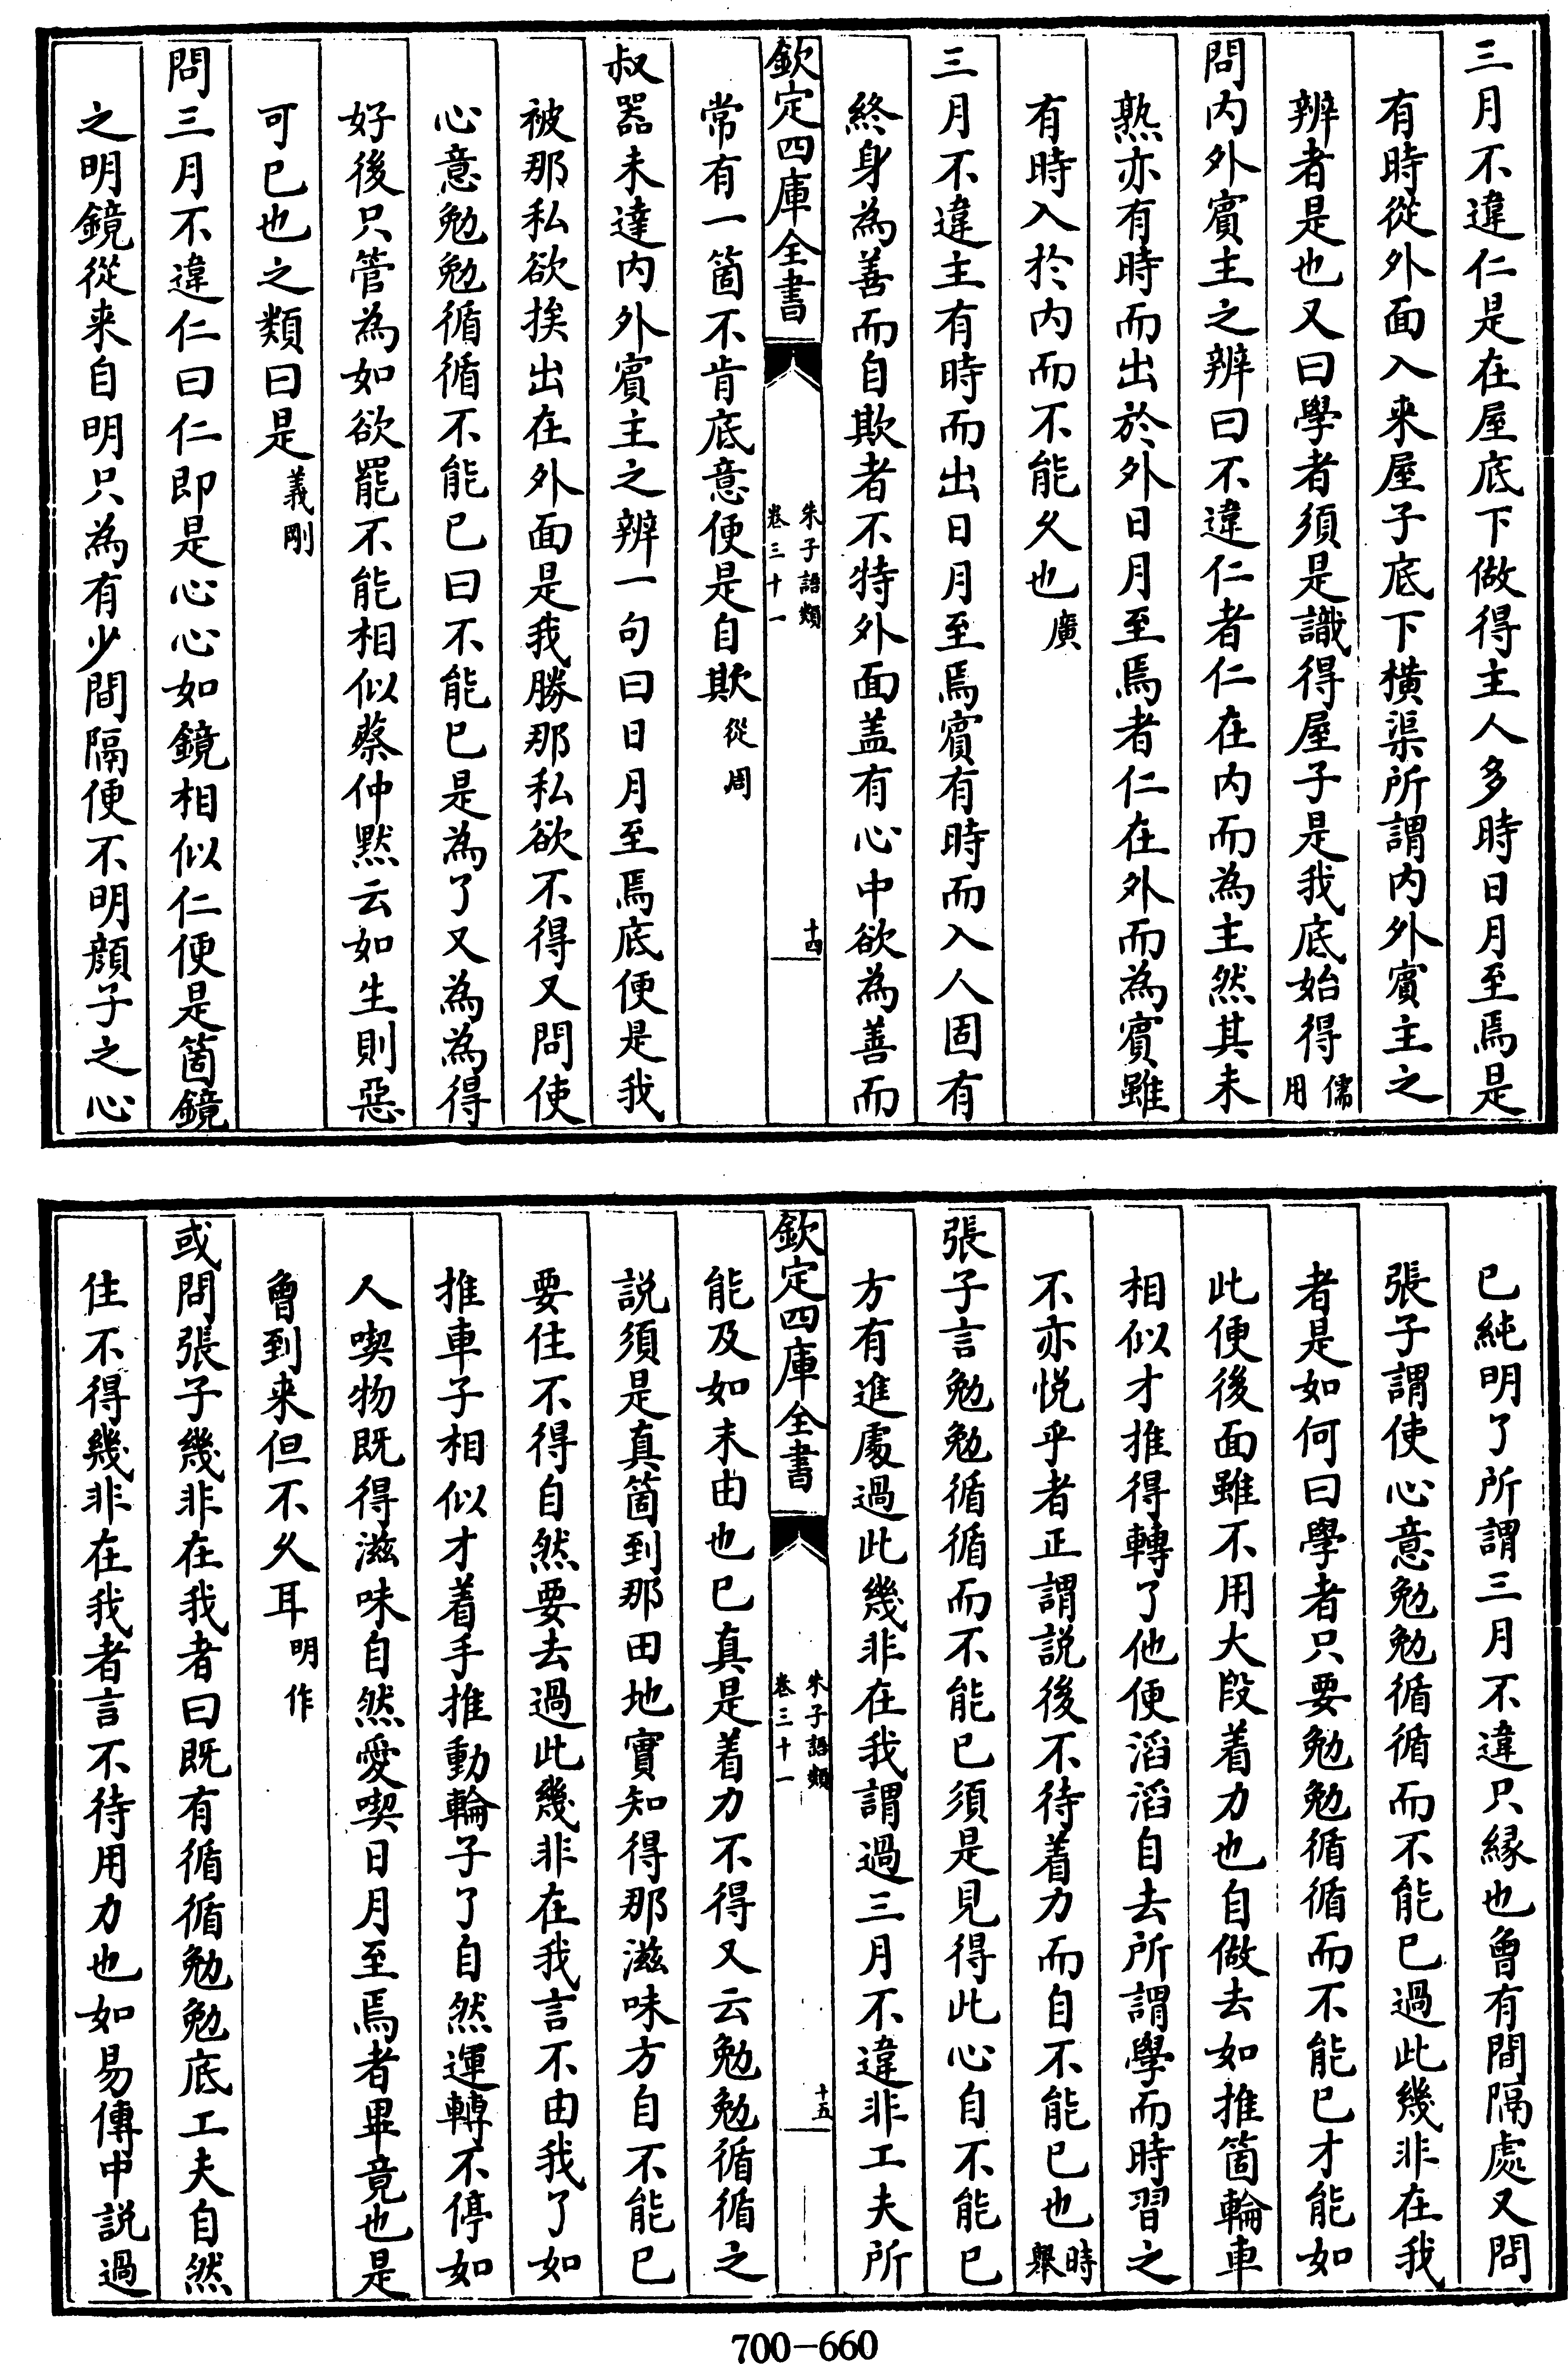 三月不違仁是在屋底下做得主人多時日月至焉是
有時從外面入来屋子底下横渠所謂内外賓主之
辨者是也又曰學者須是識得屋子是我底始得儒用
問内外賓主之辨曰不違仁者仁在内而為主然其未
熟亦有時而出於外日月至焉者仁在外而為賓雖
有時入於内而不能久也廣
三月不違主有時而出日月至焉賓有時而入人固有
終身為善而自欺者不特外面盖有心中欲為善而
欽定四庫全書
朱子語類
卷三十一
十四
常有一箇不肯底意便是自欺從周
叔器未達内外賓主之辨一句曰日月至焉底便是我
被那私欲挨出在外面是我勝那私欲不得又問使
心意勉勉循循不能已曰不能已是為了又為為得
好後只管為如欲罷不能相似蔡仲黙云如生則惡
可已也之類曰是義剛
問三月不違仁曰仁即是心心如鏡相似仁便是箇鏡
之明鏡從来自明只為有少間隔便不明顔子之心
已純明了所謂三月不違只縁也曾有間隔處又問
張子謂使心意勉勉循循而不能已過此幾非在我
者是如何曰學者只要勉勉循循而不能已才能如
此便後面雖不用大段着力也自做去如推箇輪車
相似才推得轉了他便滔滔自去所謂學而時習之
不亦悦乎者正謂説後不待着力而自不能已也時舉
張子言勉勉循循而不能已須是見得此心自不能已
方有進處過此幾非在我謂過三月不違非工夫所
欽定四庫全書
朱子語類
卷三十一
十五
能及如末由也已真是着力不得又云勉勉循循之
説須是真箇到那田地實知得那滋味方自不能已
要住不得自然要去過此幾非在我言不由我了如
推車子相似才着手推動輪子了自然運轉不停如
人喫物既得滋味自然愛喫日月至焉者畢竟也是
曾到来但不久耳明作
或問張子幾非在我者曰既有循循勉勉底工夫自然
住不得幾非在我者言不待用力也如易傳中説過
700-660